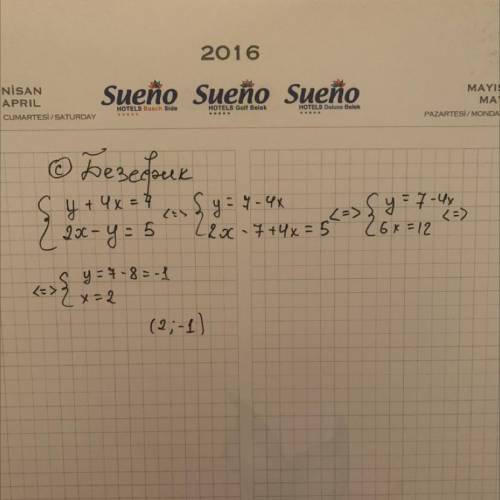 2016
NİSAN
APRIL
CUMARTESİ / SATURDAY
Sueño
HOTELS Beach Side
Sueño
HOTELS Golf Belek
Sueño
HOTELS Deluxe Belek
MAYIS
MA
PAZARTESİ / MONDA
© Безефик
{ y + 4x = 7 <=> { y = 7 - 4x <=> { y = 7 - 4x <=>
{ 2x - y = 5 { 2x - 7 + 4x = 5 { 6x = 12
<=> { y = 7 - 8 = -1
{ x = 2
(2; -1)